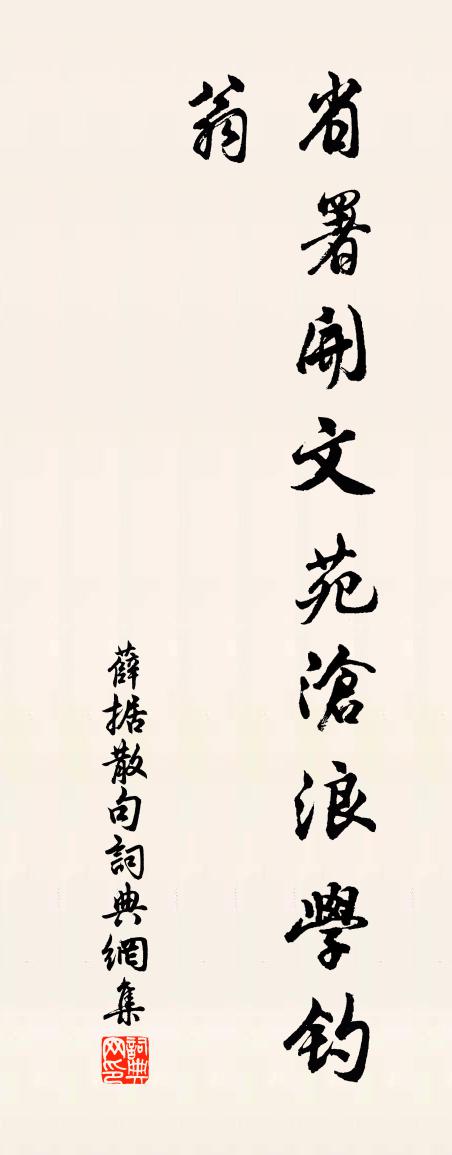 省署開文苑滄浪學钓
翁
薛据散句詞典網集
詞典网印